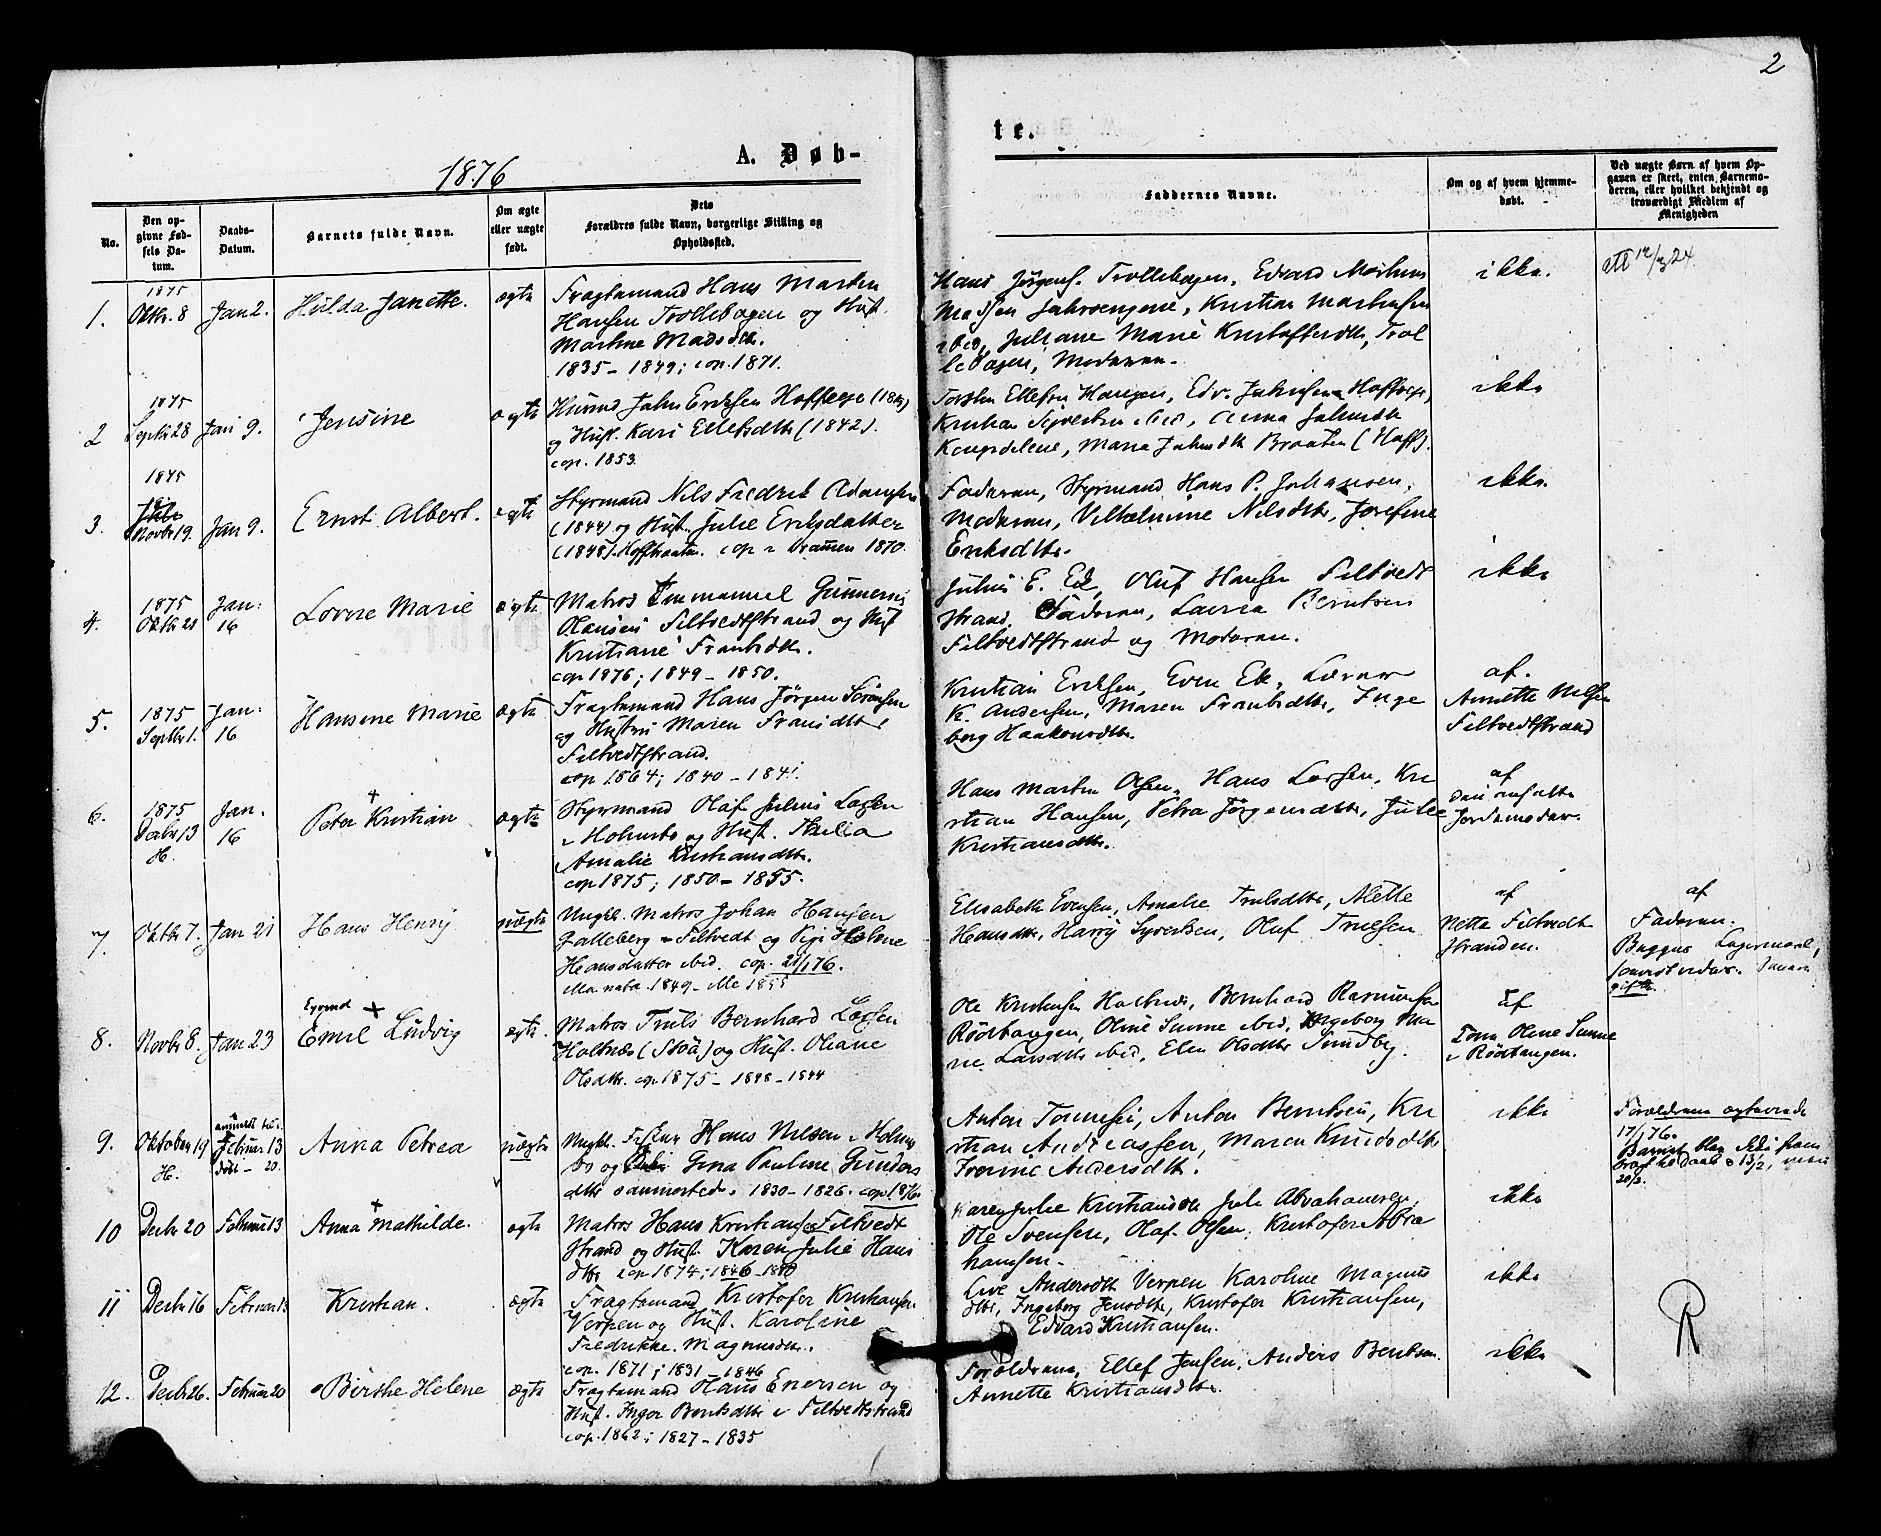 2
1876
A. Døb-
te.
No.
Den op-
givne Fød-
sels Da-
tum.
Daabs-
Datum.
Barnets fulde Navn.
Om ægte
eller uægte
født.
Dets
Forældres fulde Navn, borgerlige Stilling og
Opholdssted.
Faddernes Navne.
Om og af hvem hjemme-
døbt.
Ved uægte Børn af hvem Op-
gaven er skeet, enten Barnemo-
deren, eller hvilket bekjendt og
troværdigt Medlem af
Menigheden
1.
1875
Oktbr. 8
Jan 2.
Hulda Janette.
ægte
Fragtemand Hans Martin
Hansen Trollebogen og Hust.
Martine Madsdtr.
1835 - 1849; cop. 1871.
Hans Jørgens. Trollebogen, Edvard
Madsen, Kristian Mathisen
ibid, Juliane Marie Kristoffersdtr, Trol
lebogen, Moderen.
ikke.
att 12/3 24
2
1875
Septbr 28
Jan 9.
Jensine
ægte
Husmd John Eriksen
og Hust. Kari Ellefsdtr (1842).
cop. 1853.
Torsten Ellefsen Haugen, Edv. Johnsen
Kristian ibid, Anna Johnsdtr
Maria Johnsdtr Braaten (Hoff).
ikke
3.
1875
Novbr 19.
Jan 9.
Ernst Albert.
ægte
Styrmand Nils Fredrik Adamsen
(1844) og Hust. Julie Eriksdatter
(1848). cop i Drammen 1870.
Faderen, Styrmand Hans P. Johansen,
Moderen, Vilhelmine Nilsdtr, Josefine
Eriksdtr.
ikke.
4.
1875
Oktbr 21
Jan:
16
Lovise Marie
ægte
Matros Emmanuel Gunnerius
Hansen Filtvedtstrand og Hust
Kristiane Frantsdtr.
cop 1876; 1849 - 1850.
Julius E. Ek, Oluf Hansen Filtvedt
strand, Faderen, Laura Berntsen
Filtvedtstrand og Moderen.
ikke
5.
1875
Septbr 1.
Jan:
16
Hansine Marie
ægte
Fragtemand Hans Jørgen Sørensen
og Hustru Maren Fransdtr
Filtvedtstrand.
cop 1864; 1840 - 1841.
Kristian Eriksen, Even Ek, Lærer
K. Andersen, Maren Frantsdtr, Inge
borg Haakonsdtr.
af.
Annette Nilsen
Filtvedtstrand
6.
1875
Decbr 13
H.
Jan.
16
+
Peter Kristian
ægte
Styrmand Olaf Julius Larsen
i Holmsbo og Hust. Thilia
Amalie Kristiansdtr.
cop 1875; 1850 - 1855.
Hans Martin Olsen, Hans Larsen, Kri
stian Hansen, Petra Jørgensdtr, Julie
Kristiansdtr.
af
den ansatte
Jordemoder.
7.
Oktbr 7.
Jan 21
Hans Henry
uægte
Ungkl. Matros Johan Hansen
Filtvedt og Pige Helene
Hansdatter ibid. cop. 21/1 76.
1849 - 1855
Elisabeth Evensen, Amalie Trulsdtr, Nette
Hansdtr, Harry Syversen, Oluf Truelsen
af
Nette Filtvedt
stranden.
af
Faderen.
8.
Novbr 8.
Jan 23
Eyvind +
Emil Ludvig
ægte.
Matros Truls Bernhard Larsen
Holtnæs (Støa) og Hust. Oleane
Olsdtr. cop 1875 - 1848 - 1844
Ole Kristensen Holtnæs, Bernhard Rasmussen
Rødtangen, Oline Sunne ibid, Ingeborg Ma
rie Larsdtr ibid, Elen Olsdtr Sundby.
af
Oline Sunne
i Rødtangen.
9.
Oktober 19
H.
Februar 13
døbt - 20.
Anna Petrea
uægte
Ungkl. Hans Nilsen i Holms
bo og Gina Pauline Gunders
dtr sammesteds. 1830 - 1826. cop 1876.
Anton Tønnesen, Anton Berntsen, Kri
stian Andreassen, Maren Knudsdtr
Iverine Andersdtr.
ikke
Forældrene ægteviede
17/1 76.
Barnet blev ikke frem
bragt til Daab 13/2,
20/2.
10
Decbr 20
Februar 13
+
Anna Mathilde.
ægte
Matros Hans Kristiansen Filtvedt
strand og Hust. Karen Julie Hans
dtr cop 1874; 1846 - 1850
Karen Julie Kristiansdtr, Julie Abrahamsen,
Ole Svensen, Olaf Olsen, Kristofer Abra
hamsen.
ikke
11
Decbr 16
Februar 13
Kristian.
ægte
Fragtemand Kristofer Kristiansen
Verpen og Hust. Karoline
Fredrikke Magnusdtr.
cop. 1871; 1831 - 1846
Live Andersdtr Verpen Karoline Magnus
dtr, Ingeborg Jensdtr, Kristofer Kristiansen,
Edvard Kristiansen.
ikke
R
12.
Decbr 26.
Februar 20
Birthe Helene
ægte
Fragtemand Hans Enersen og
Hust. Inger Berntsdtr i Filtvedtstrand
cop. 1862; 1827 - 1835
Forældrene, Ellef Jensen, Anders Berntsen.
Annette Kristiansdtr.
ikke